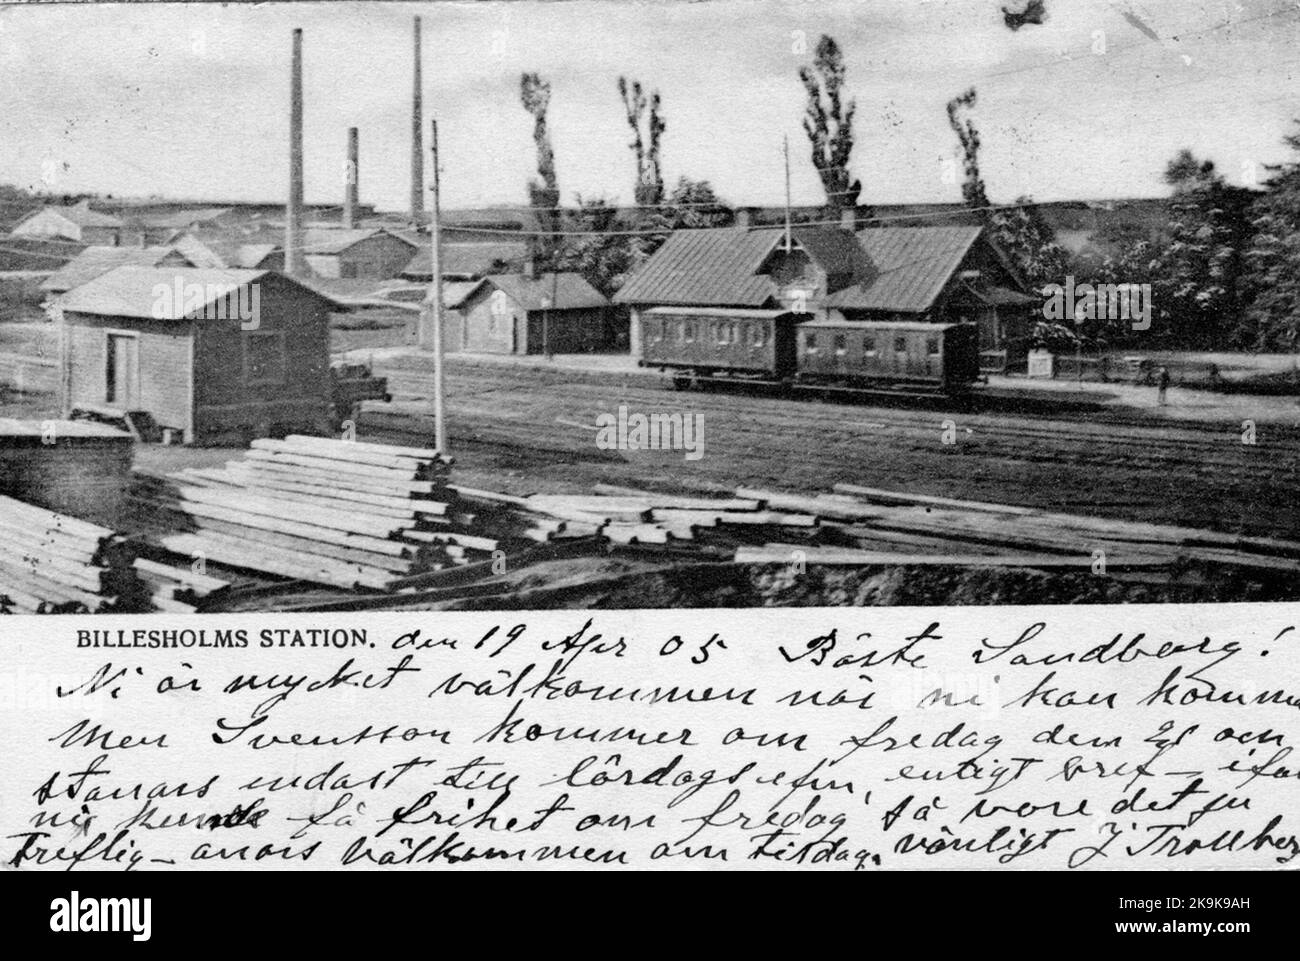 BILLESHOLMS STATION. den 19 Apr 05 Bäste Sandberg!
Ni är mycket välkommen när ni kan komma
men Svensson kommer om fredag den 21 och
stanar endast till lördags efm, entligt bref – ifal
ni kunde få frihet om fredag så vore det ju
treflig – anars välkommen om tisdag. vänligt J Trollberg
alamy
Image ID: 2K9K9AH
www.alamy.com